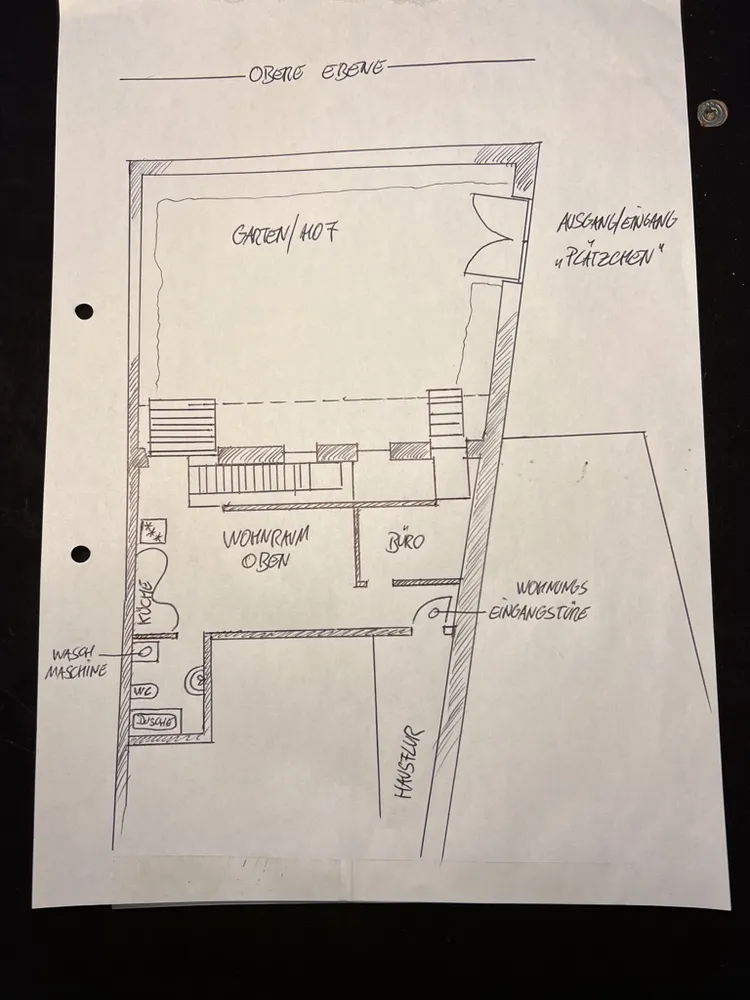 OBERE EBENE
GARTEN/HOF
AUSGANG/EINGANG
„PLÄTZCHEN"
WOHNRAUM
OBEN
BÜRO
KÜCHE
WOHNUNGS
EINGANGSTÜRE
WASCH
MASCHINE
WC
DUSCHE
HAUSFLUR